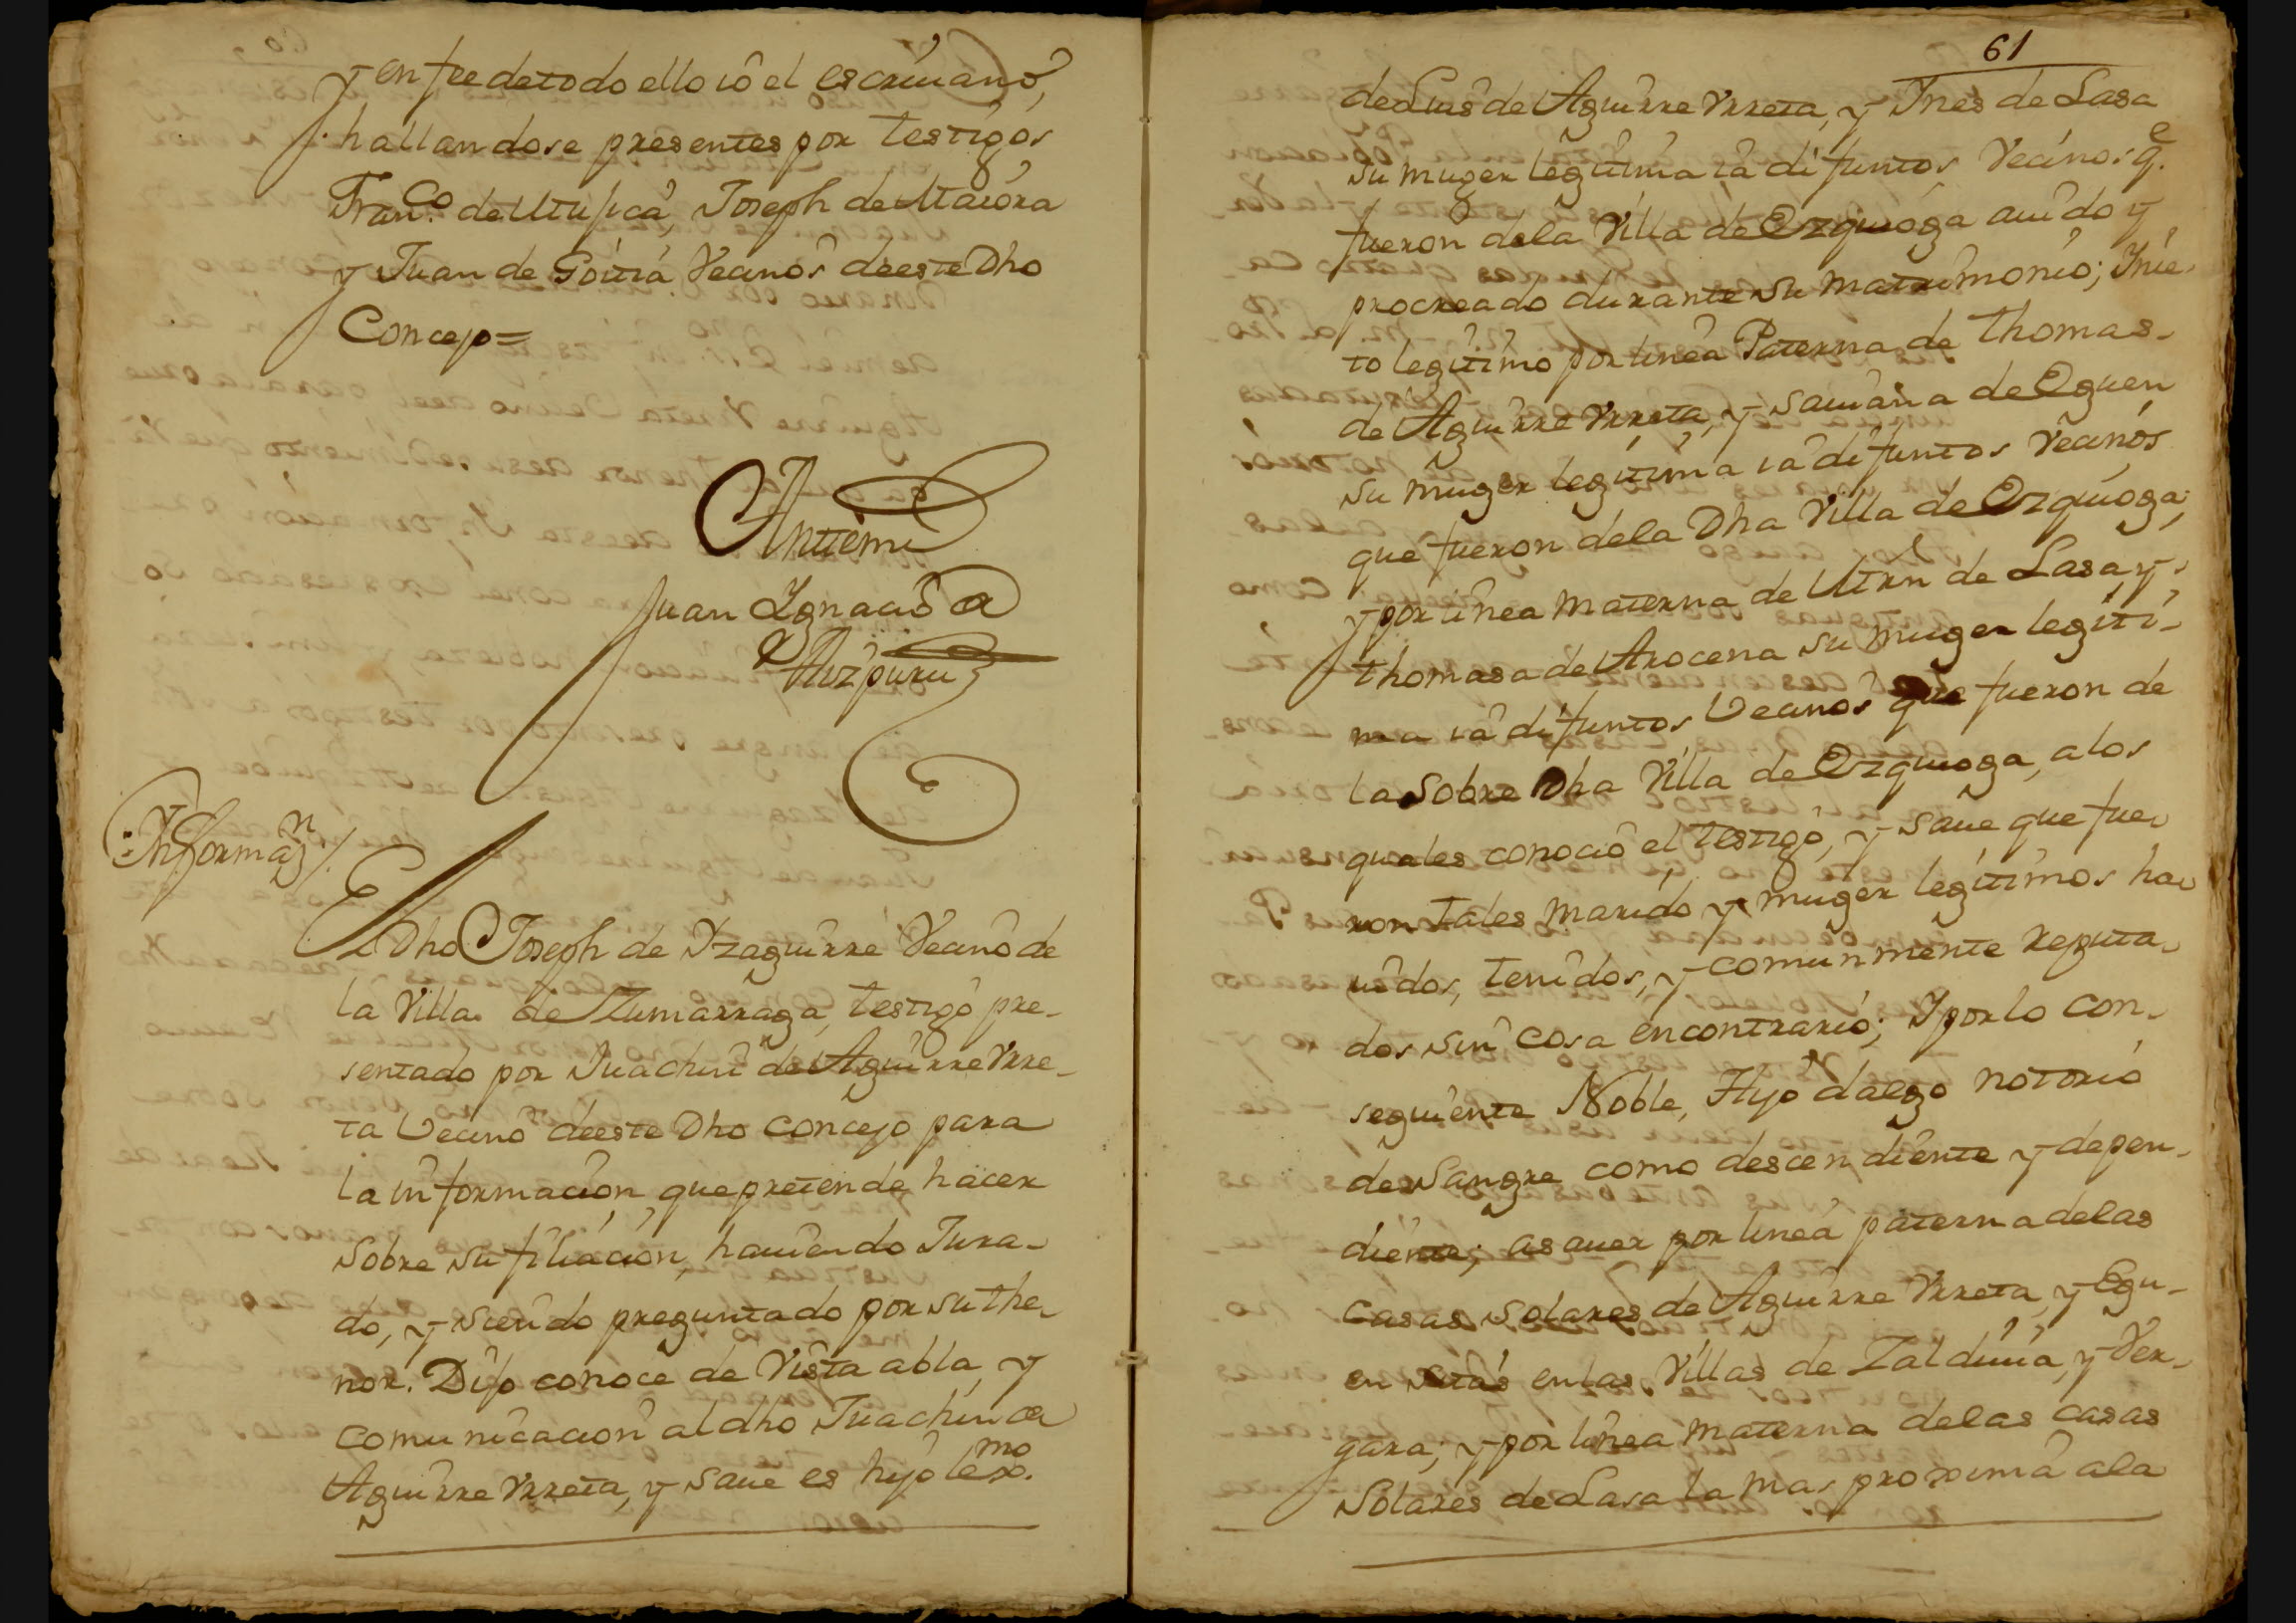 y en fee de todo ello io el escriuano,
hallandose presentes por testigos
Fran.co de Mujica, Joseph de Maiora
y Juan de Goitia Vecinos deeste Dho
Concejo =
Anttemi
Juan Ygnacio de
Aizpuru
Informaz.n
El Dho Joseph de Yzaguirre Vecino de
la Villa de Zumarraga, testigo pre-
sentado por Juachin de Aguirre Vrre-
ta Vecino deeste Dho concejo para
la informacion, que pretende hacer
sobre su filiacion, hauiendo Jura-
do, y siendo preguntado por su the-
nor. Dijo conoce de Vista abla, y
comunicacion al dho Juachin de
Aguirre Vrreta, y saue es hijo lexmo.
61
de Luis de Aguirre Vrreta, y Ines de Lasa
su muger legitima ia difuntos Vecinos q.e
fueron dela Villa de Ezquioga auido y
procreado durante su matrimonio; Nie-
to legitimo por linea Paterna de Thomas-
de Aguirre Vrreta, y Samana de Eguen
su muger legitima ia difuntos Vecinos
que fueron dela Dha Villa de Ezquioga;
y por linea materna de Mrn de Lasa, y
thomasa de Arocena su muger legiti-
ma ia difuntos Vecinos que fueron de
la sobre Dha Villa de Ezquioga, a los
quales conocio el testigo, y saue que fue-
ron tales marido y muger legitimos ha-
uidos, tenidos, y comunmente reputa-
dos sin cosa encontrario; I por lo con-
seguiente Noble, Hijo dalgo notorio
de Sangre como descendiente y depen-
diente; asauer por linea paterna delas
casas solares de Aguirre Vrreta, y Egu-
en sitas enlas Villas de Zalduuia, y Ver-
gara; y por linea materna delas casas
Solares de Lasa la mas proxima ala